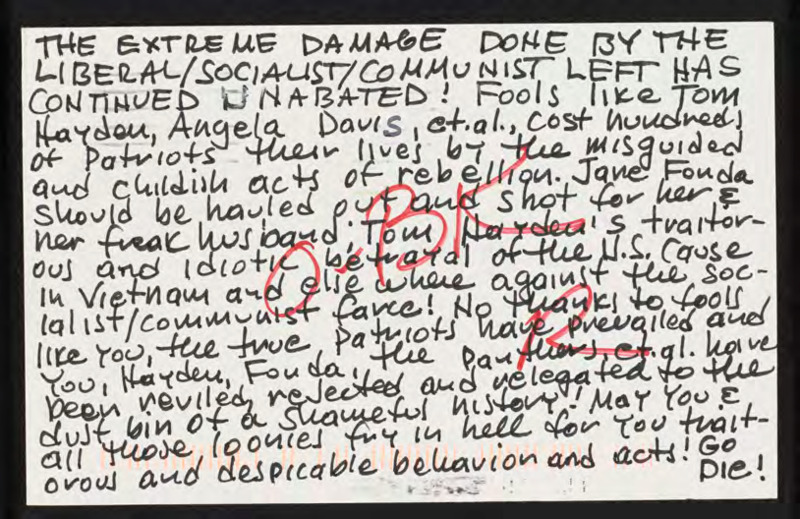 THE EXTREME DAMAGE DONE BY THE
LIBERAL/SOCIALIST/COMMUNIST LEFT HAS
CONTINUED UNABATED! Fools like Tom
Hayden, Angela Davis, et.al., cost hundreds
of Patriots their lives by the misguided
and childish acts of rebellion. Jane Fonda
should be hauled out and shot for her &
her freak husband, Tom Hayden's traitor-
ous and idiotic betrayal of the U.S. Cause
in Vietnam and elsewhere against the soc-
ialist/communist farce! No thanks to fools
like You, the true Patriots have prevailed and
You, Hayden, Fonda, the Panthers et.al. have
been reviled, rejected and relegated to the
dust bin of a shameful history! May You &
all those loonies fry in hell for You trait-
orous and despicable behavior and acts! Go
Die!
O-BK
R